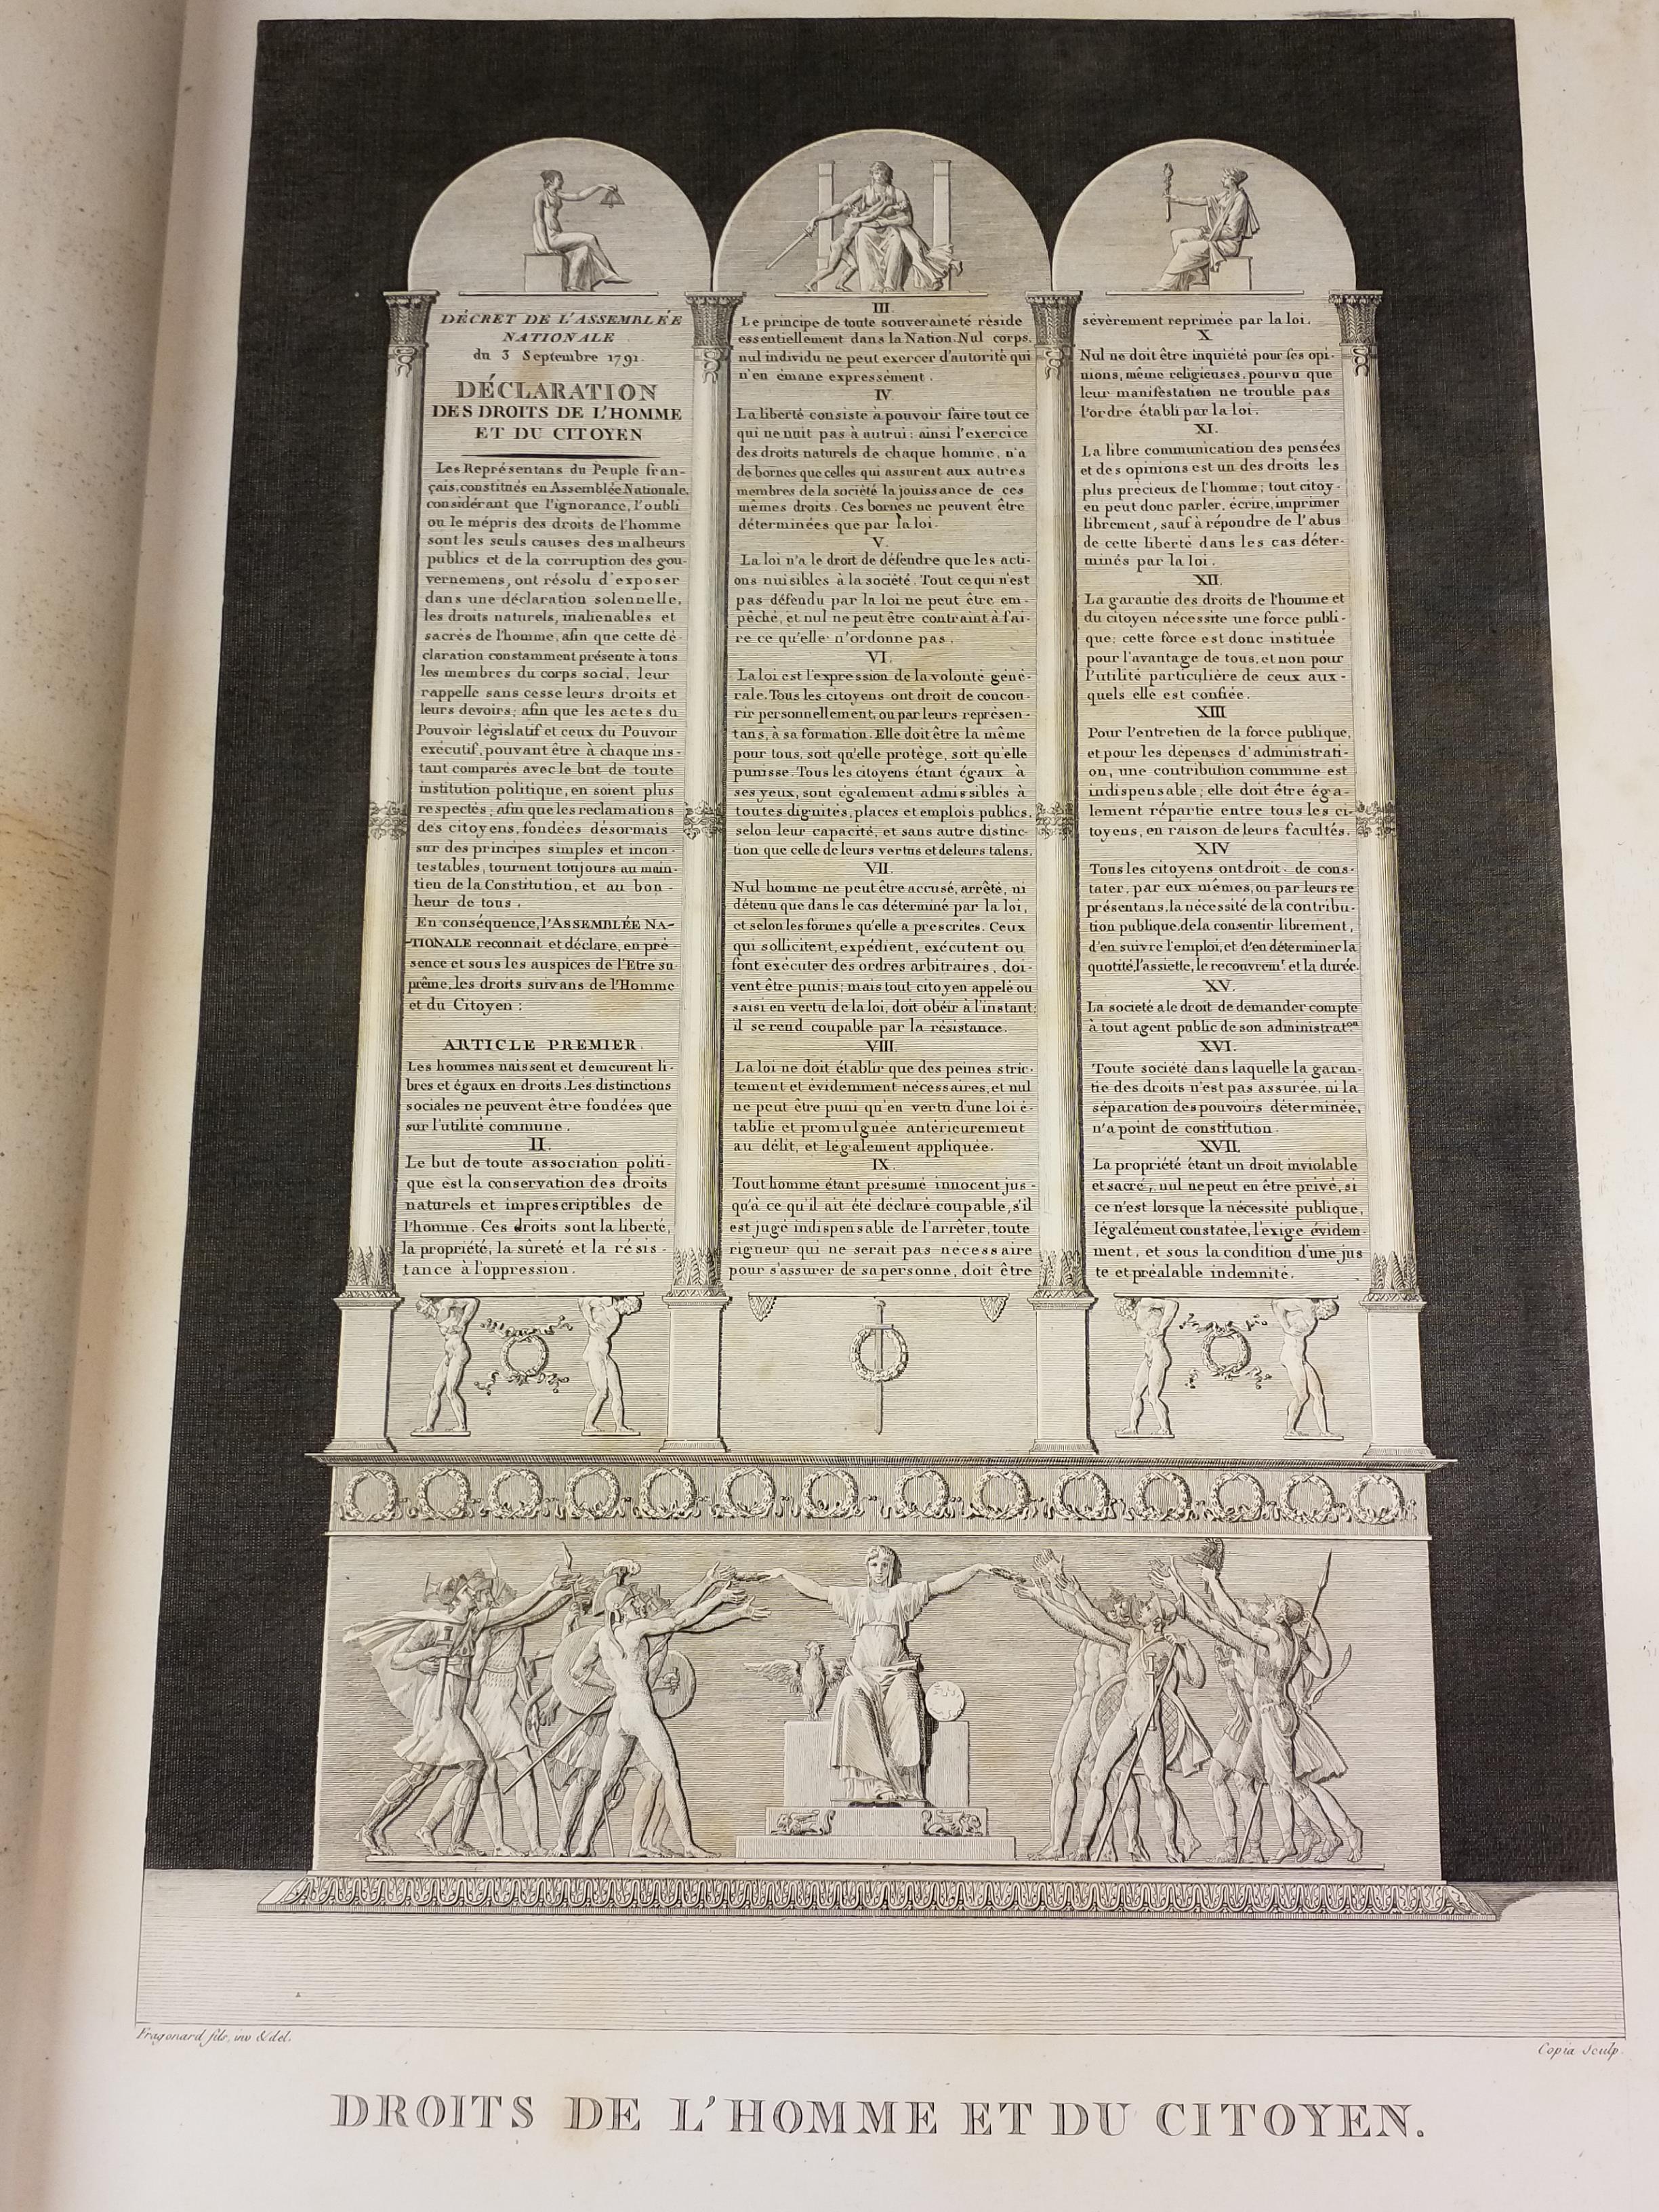 DÉCRET DE L'ASSEMBLÉE
NATIONALE
du 3 Septembre 1791.
DÉCLARATION
DES DROITS DE L'HOMME
ET DU CITOYEN
Les Représentans du Peuple fran-
çais, constitués en Assemblée Nationale,
considérant que l'ignorance, l'oubli
ou le mépris des droits de l'homme
sont les seuls causes des malheurs
publics et de la corruption des gou-
vernemens, ont résolu d'exposer
dans une déclaration solennelle,
les droits naturels, inalienables et
sacrés de l'homme, afin que cette dé-
claration constamment présente à tous
les membres du corps social, leur
rappelle sans cesse leurs droits et
leurs devoirs; afin que les actes du
Pouvoir législatif et ceux du Pouvoir
exécutif, pouvant être à chaque ins-
tant comparés avec le but de toute
institution politique, en soient plus
respectés; afin que les reclamations
des citoyens, fondées désormais
sur des principes simples et incon-
testables, tournent toujours au main-
tien de la Constitution, et au bon-
heur de tous.
En conséquence, l'ASSEMBLÉE NA-
TIONALE reconnait et déclare, en pré-
sence et sous les auspices de l'Etre su-
prême, les droits suivans de l'Homme
et du Citoyen:
ARTICLE PREMIER.
Les hommes naissent et demeurent li-
bres et égaux en droits. Les distinctions
sociales ne peuvent être fondées que
sur l'utilité commune.
II.
Le but de toute association politi-
que est la conservation des droits
naturels et imprescriptibles de
l'homme. Ces droits sont la liberté,
la propriété, la sûreté et la résis-
tance à l'oppression.
III.
Le principe de toute souveraineté réside
essentiellement dans la Nation. Nul corps,
nul individu ne peut exercer d'autorité qui
n'en émane expressément.
IV
La liberté consiste à pouvoir faire tout ce
qui ne nuit pas à autrui: ainsi l'exercice
des droits naturels de chaque homme, n'a
de bornes que celles qui assurent aux autres
membres de la société la jouissance de ces
mêmes droits. Ces bornes ne peuvent être
déterminées que par la loi.
V.
La loi n'a le droit de défendre que les acti-
ons nuisibles à la société. Tout ce qui n'est
pas défendu par la loi ne peut être em-
pêché, et nul ne peut être contraint à fai-
re ce qu'elle n'ordonne pas.
VI.
La loi est l'expression de la volonté géné-
rale. Tous les citoyens ont droit de concou-
rir personnellement, ou par leurs représen-
tans, à sa formation. Elle doit être la même
pour tous, soit qu'elle protège, soit qu'elle
punisse. Tous les citoyens étant égaux à
ses yeux, sont également admissibles à
toutes dignités, places et emplois publics,
selon leur capacité, et sans autre distinc-
tion que celle de leurs vertus et de leurs talens.
VII.
Nul homme ne peut être accusé, arrêté, ni
détenu que dans le cas déterminé par la loi,
et selon les formes qu'elle a prescrites. Ceux
qui sollicitent, expédient, exécutent ou
font exécuter des ordres arbitraires, doi-
vent être punis; mais tout citoyen appelé ou
saisi en vertu de la loi, doit obéir à l'instant;
il se rend coupable par la résistance.
VIII.
La loi ne doit établir que des peines stric-
tement et évidemment nécessaires, et nul
ne peut être puni qu'en vertu d'une loi é-
tablie et promulguée antérieurement
au délit, et légalement appliquée.
IX.
Tout homme étant présumé innocent jus-
qu'à ce qu'il ait été déclaré coupable, s'il
est jugé indispensable de l'arrêter, toute
rigueur qui ne serait pas nécessaire
pour s'assurer de sa personne, doit être
sévèrement reprimée par la loi.
X
Nul ne doit être inquiété pour ses opi-
nions, même religieuses, pourvu que
leur manifestation ne trouble pas
l'ordre établi par la loi.
XI.
La libre communication des pensées
et des opinions est un des droits les
plus précieux de l'homme; tout citoy-
en peut donc parler, écrire, imprimer
librement, sauf à répondre de l'abus
de cette liberté dans les cas déter-
minés par la loi.
XII.
La garantie des droits de l'homme et
du citoyen nécessite une force publi-
que; cette force est donc instituée
pour l'avantage de tous, et non pour
l'utilité particulière de ceux aux-
quels elle est confiée.
XIII
Pour l'entretien de la force publique,
et pour les dépenses d'administrati-
on, une contribution commune est
indispensable; elle doit être éga-
lement répartie entre tous les ci-
toyens, en raison de leurs facultés.
XIV
Tous les citoyens ont droit de cons-
tater, par eux mêmes, ou par leurs re
présentans, la nécessité de la contribu-
tion publique, de la consentir librement,
d'en suivre l'emploi, et d'en déterminer la
quotité, l'assiette, le recouvremt. et la durée.
XV.
La société a le droit de demander compte
à tout agent public de son administraton
XVI.
Toute société dans laquelle la garan-
tie des droits n'est pas assurée, ni la
séparation des pouvoirs déterminée,
n'a point de constitution.
XVII.
La propriété étant un droit inviolable
et sacré, nul ne peut en être privé, si
ce n'est lorsque la nécessité publique,
légalement constatée, l'exige évidem-
ment, et sous la condition d'une jus
te et préalable indemnité.
Fragonard fils, inv & del.
Copia Sculp.
DROITS DE L'HOMME ET DU CITOYEN.